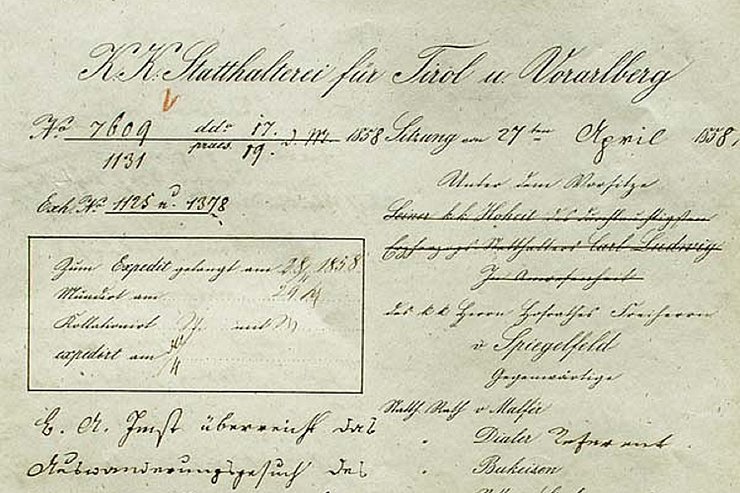 K.K. Statthalterei für Tirol u. Vorarlberg
No 7609 ddo 17. d. M. 1858
1131 praes. 19.
Exh. No 1125 u. 1378
Zum Expedit gelangt am 28/ 1858
Mundirt am 29
Kollationirt mit
expedirt am /4
E. A. Imst überreicht das
Auswanderungsgesuch des
Sitzung vom 27ten April 1858,
Unter dem Vorsitze
Seiner k.k. Hoheit des durchlauchtigsten
Erzherzogs Statthalters Carl Ludwig
In Anwesenheit
des k.k. Herrn Hofrathes Freiherrn
v Spiegelfeld
Gegenwärtige
Statth. Rath v Malfér
" Dialer Referent.
" Bukeisen